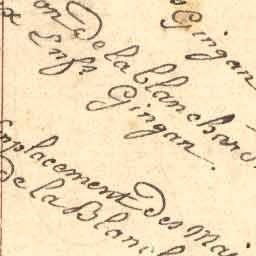 Gingan
on de la blanchard
x Enfs Gingan.
Emplacement des mai
de la Blanch